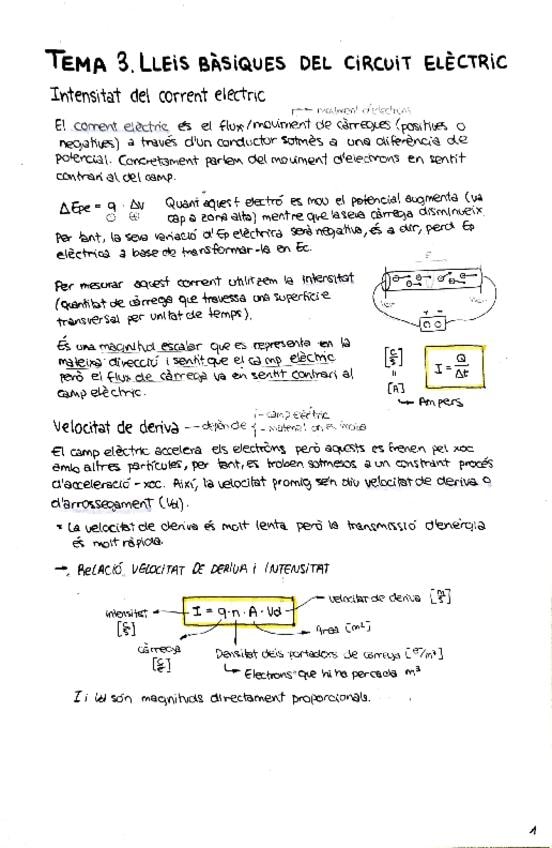 TEMA 3. LLEIS BÀSIQUES DEL CIRCUIT ELÈCTRIC
Intensitat del corrent electric
moviment d'electrons
El corrent elèctric és el flux/moviment de càrregues (positives o
negatives) a través d'un conductor sotmès a una diferència de
potencial. Concretament parlem del moviment d'electrons en sentit
contrari al del camp.
ΔEpe = q · ΔV
⊖ ⊕
Quan aquest electró es mou el potencial augmenta (va
cap a zona alta) mentre que la seva càrrega disminueix.
Per tant, la seva variació d'Ep elèctrica serà negativa, és a dir, perd Ep
elèctrica a base de transformar-la en Ec.
Per mesurar aquest corrent utilitzem la intensitat
(quantitat de càrrega que travessa una superfície
transversal per unitat de temps).
És una magnitud escalar que es representa en la
mateixa direcció i sentit que el camp elèctric
però el flux de càrrega va en sentit contrari al
camp elèctric.
[C/s] = [A]
I = Q/Δt
Ampers
Velocitat de deriva -- depèn de
- camp elèctric
- material on es mou
El camp elèctric accelera els electròns però aquests es frenen pel xoc
amb altres partícules, per tant, es troben sotmesos a un constant procés
d'acceleració - xoc. Així, la velocitat promig se'n diu velocitat de deriva o
d'arrossegament (Vd).
* La velocitat de deriva és molt lenta però la transmissió d'energia
és molt ràpida.
→ RELACIÓ VELOCITAT DE DERIVA I INTENSITAT
intensitat
[C/s]
I = q · n · A · Vd
velocitat de deriva [m/s]
Àrea [m²]
càrrega
Densitat dels portadors de càrrega [e⁻/m³]
Electrons que hi ha per cada m³
I i Vd són magnituds directament proporcionals.
1